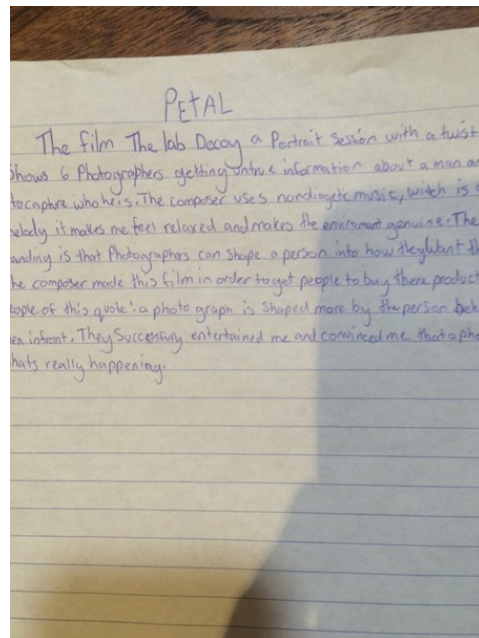 PEtAL
The film The lab Decoy a Portrait Session with a twist
shows 6 Photographers getting untrue information about a man an
to capture who he is. The composer uses nondiagetic music, witch is a
melody it makes me feel relaxed and makes the enviroment genuine. The
anding is that Photographers can shape a person into how they Want th
he composer made this film in order to get people to buy there product
eople of this quote: a photo graph is shaped more by the person beh
en infront. They Successfully entertained me and convinced me that a pho
hats really happening.